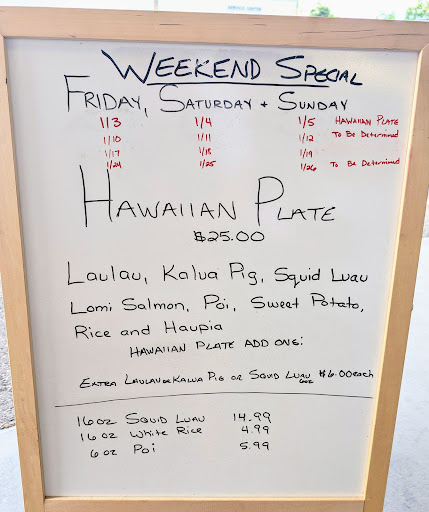 WEEKEND SPECIAL
FRIDAY, SATURDAY + SUNDAY
1/3 1/4 1/5 HAWAIIAN PLATE
1/10 1/11 1/12 To Be Determined
1/17 1/18 1/19
1/24 1/25 1/26 To Be Determined
HAWAIIAN PLATE
$25.00
Laulau, Kalua Pig, Squid Luau
Lomi Salmon, Poi, Sweet Potato,
Rice and Haupia
HAWAIIAN PLATE ADD ONS:
EXTRA LAULAU OR KALUA PIG OR SQUID LUAU 6oz $6.00 each
16 oz SQUID LUAU 14.99
16 oz WHITE RICE 4.99
6 oz POI 5.99